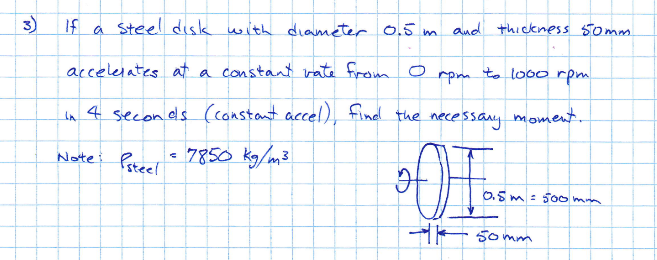 3) If a steel disk with diameter 0.5 m and thickness 50mm
accelerates at a constant rate from 0 rpm to 1000 rpm
in 4 seconds (constant accel), find the necessary moment.
Note: ρsteel = 7850 kg/m³
0.5 m = 500 mm
50 mm